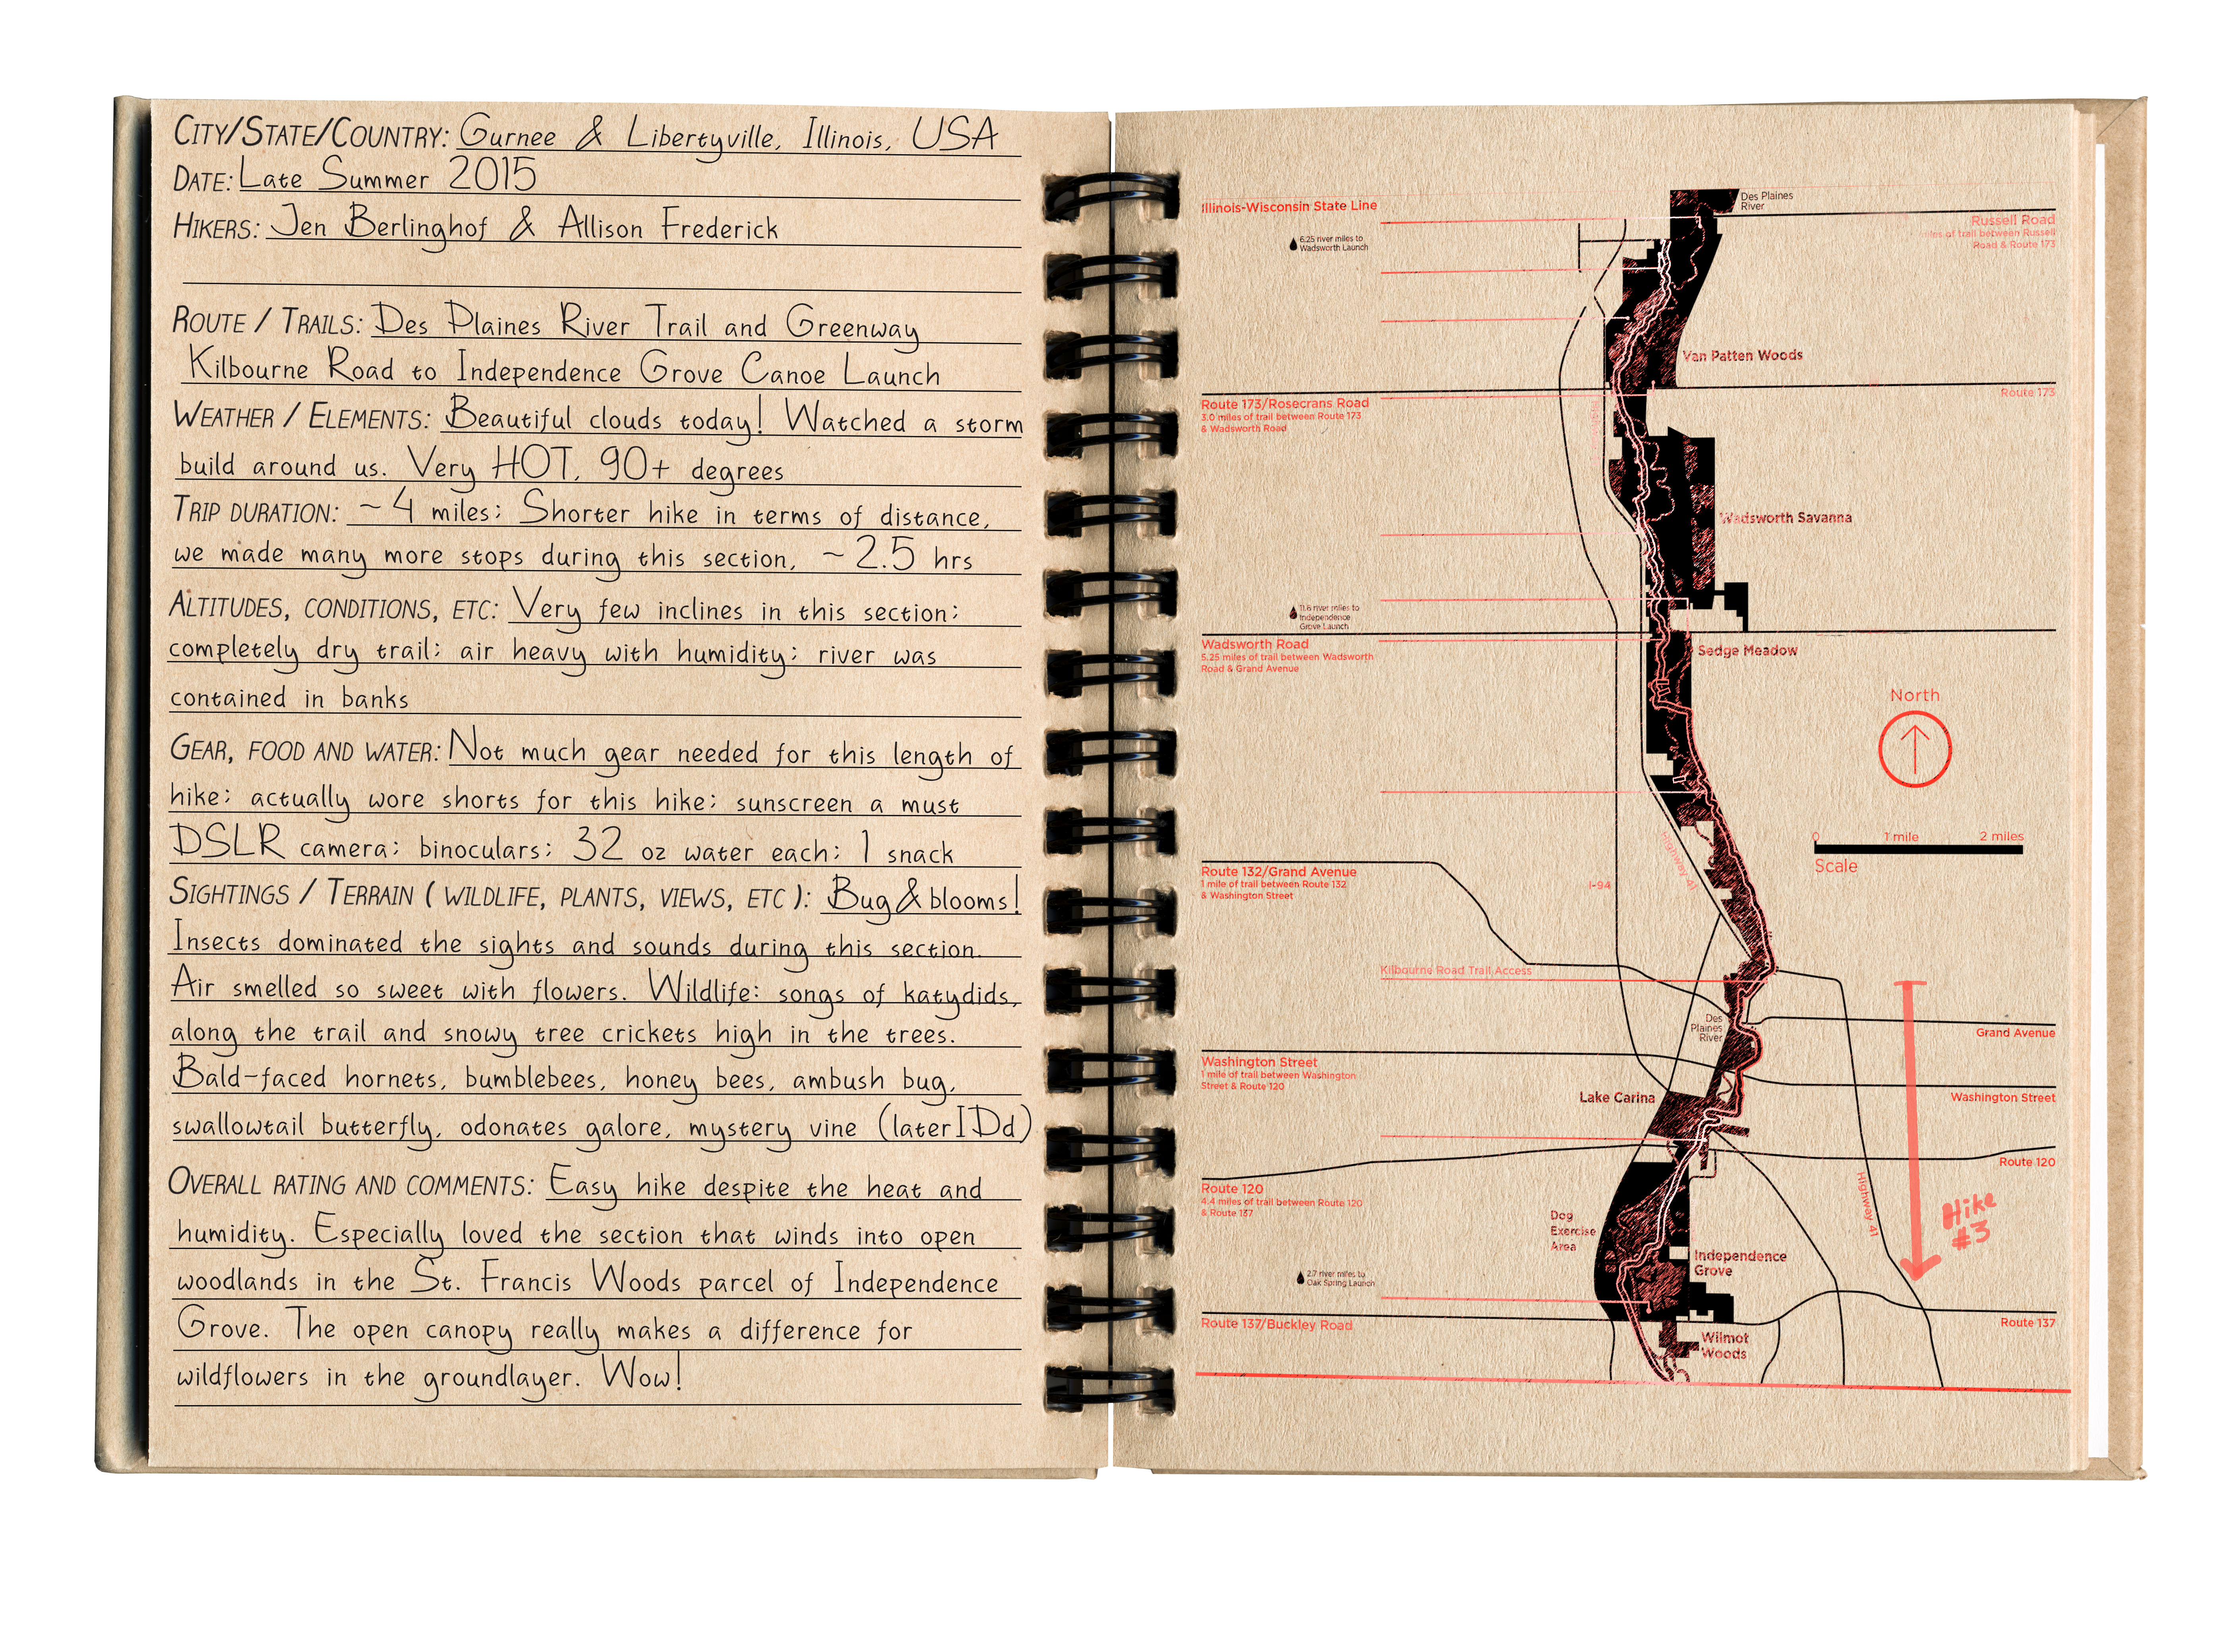 CITY/STATE/COUNTRY: Gurnee & Libertyville, Illinois, USA
DATE: Late Summer 2015
HIKERS: Jen Berlinghof & Allison Frederick
ROUTE / TRAILS: Des Plaines River Trail and Greenway
Kilbourne Road to Independence Grove Canoe Launch
WEATHER / ELEMENTS: Beautiful clouds today! Watched a storm
build around us. Very HOT, 90+ degrees
TRIP DURATION: ~4 miles; Shorter hike in terms of distance,
we made many more stops during this section, ~2.5 hrs
ALTITUDES, CONDITIONS, ETC: Very few inclines in this section;
completely dry trail; air heavy with humidity; river was
contained in banks
GEAR, FOOD AND WATER: Not much gear needed for this length of
hike; actually wore shorts for this hike; sunscreen a must
DSLR camera; binoculars; 32 oz water each; 1 snack
SIGHTINGS / TERRAIN ( WILDLIFE, PLANTS, VIEWS, ETC ): Bug & blooms!
Insects dominated the sights and sounds during this section.
Air smelled so sweet with flowers. Wildlife: songs of katydids,
along the trail and snowy tree crickets high in the trees.
Bald-faced hornets, bumblebees, honey bees, ambush bug,
swallowtail butterfly, odonates galore, mystery vine (later IDd)
OVERALL RATING AND COMMENTS: Easy hike despite the heat and
humidity. Especially loved the section that winds into open
woodlands in the St. Francis Woods parcel of Independence
Grove. The open canopy really makes a difference for
wildflowers in the groundlayer. Wow!
Des Plaines
River
Illinois-Wisconsin State Line
Russell Road
miles of trail between Russell
Road & Route 173
6.25 river miles to
Wadsworth Launch
Van Patten Woods
Route 173
Route 173/Rosecrans Road
3.0 miles of trail between Route 173
& Wadsworth Road
Wadsworth Savanna
11.6 river miles to
Independence
Grove Launch
Wadsworth Road
5.25 miles of trail between Wadsworth
Road & Grand Avenue
Sedge Meadow
North
0 1 mile 2 miles
Scale
Highway 41
I-94
Route 132/Grand Avenue
1 mile of trail between Route 132
& Washington Street
Kilbourne Road Trail Access
Des
Plaines
River
Grand Avenue
Washington Street
1 mile of trail between Washington
Street & Route 120
Lake Carina
Washington Street
Route 120
Route 120
4.4 miles of trail between Route 120
& Route 137
Highway 41
Hike
#3
Dog
Exercise
Area
Independence
Grove
2.7 river miles to
Oak Spring Launch
Route 137/Buckley Road
Route 137
Wilmot
Woods